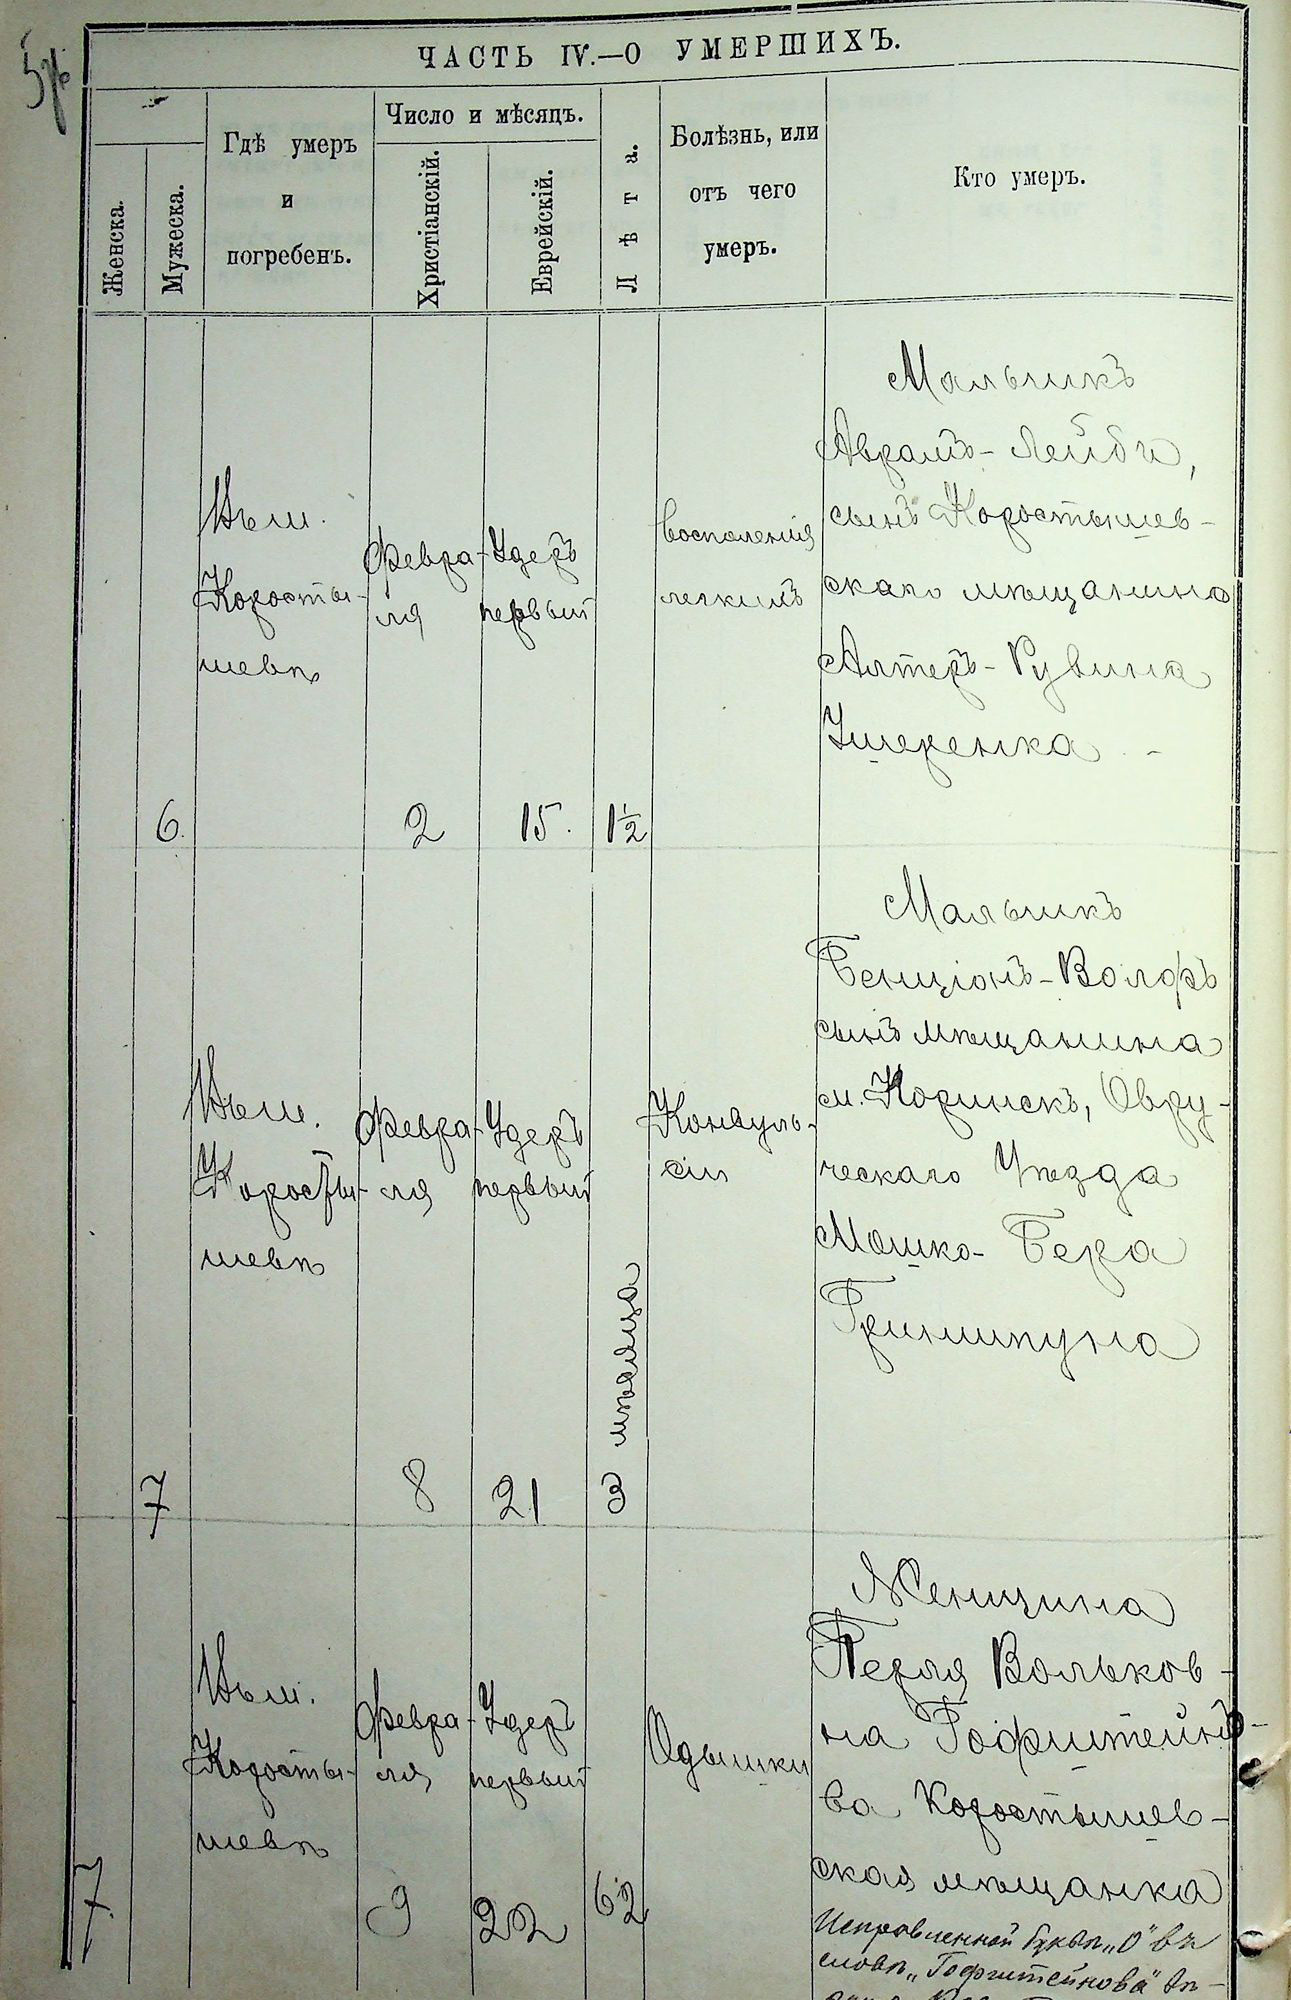 ЧАСТЬ IV.—О УМЕРШИХЪ.
Женска.
Мужеска.
Гдѣ умеръ
и
погребенъ.
Число и мѣсяцъ.
Христіанскій.
Еврейскій.
Лѣта.
Болѣзнь, или
отъ чего
умеръ.
Кто умеръ.
6.
Въ м.
Коросты-
шевѣ
Февра-
ля
2
Удеръ
первый
15.
1½
Воспаленія
легкихъ
Мальчикъ
Аврамъ-Лейби,
сынъ Коростышев-
скаго мѣщанина
Алтеръ-Рувина
Ушеренка
7
Въ м.
Коросты-
шевѣ
Февра-
ля
8
Удеръ
первый
21
3 мѣсяца
Конвуль-
сіи
Мальчикъ
Бенціонъ-Волфъ
сынъ мѣщанина
м. Норинскъ, Овру-
ческаго Уѣзда
Мошко-Бера
Гриншпуна
7
Въ м.
Коросты-
шевѣ
Февра-
ля
9
Удеръ
первый
22
62
Одышки
Женщина
Перля Вольков-
на Гофштейно-
ва Коростышев-
ская мѣщанка
Исправленной буквѣ „О" въ
словѣ „Гофштейнова"